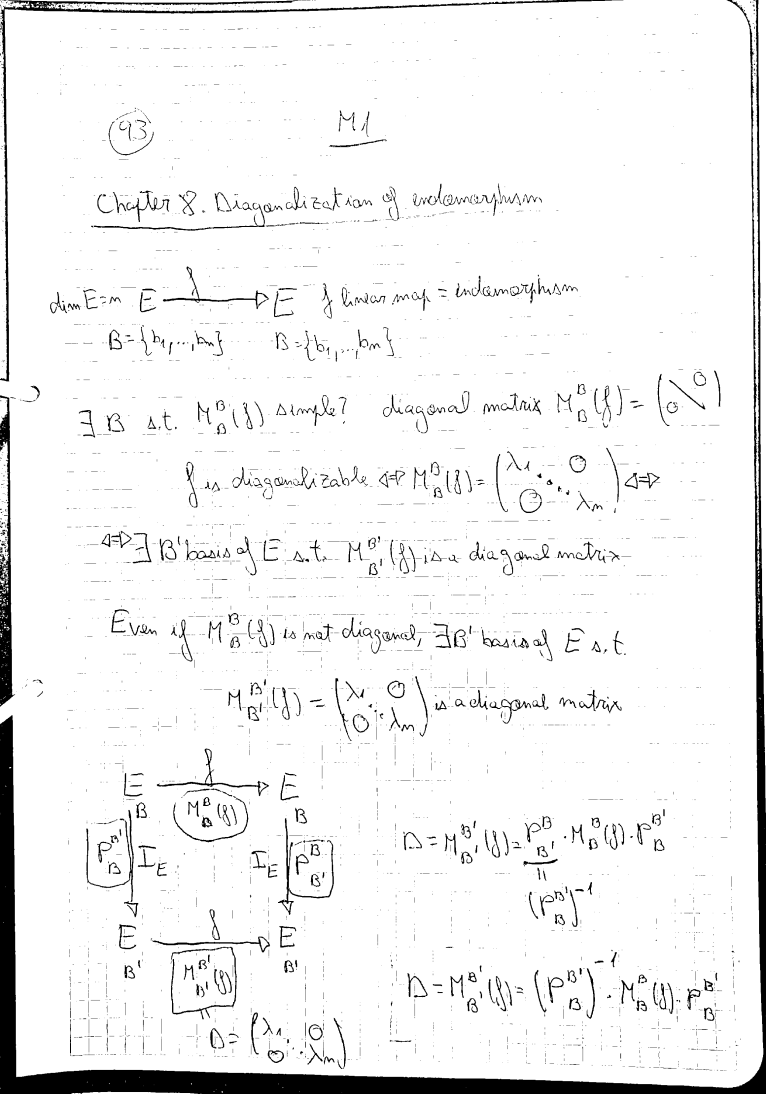 93 M1
Chapter 8. Diagonalization of endomorphism
dim E=n E —f→ E f linear map = endomorphism
B={b₁,...,bₙ} B={b₁,...,bₙ}
∃ B s.t. M_B^B(f) simple? diagonal matrix M_B^B(f) = (0 \ 0)
f is diagonalizable ⇔ M_B^B(f) = (λ₁ 0 ⋱ 0 λₙ) ⇔
⇔ ∃ B' basis of E s.t. M_B'^B'(f) is a diagonal matrix
Even if M_B^B(f) is not diagonal, ∃B' basis of E s.t.
M_B'^B'(f) = (λ₁ 0 ⋱ 0 λₙ) is a diagonal matrix
E —f→ E
B M_B^B(f) B
P_B^B' I_E I_E P_B'^B
D = M_B'^B'(f) = P_B'^B · M_B^B(f) · P_B^B'
=
(P_B^B')^-1
E —f→ E
B' M_B'^B'(f) B'
D = M_B'^B'(f) = (P_B^B')^-1 · M_B^B(f) · P_B^B'
= D = (λ₁ 0 ⋱ 0 λₙ)